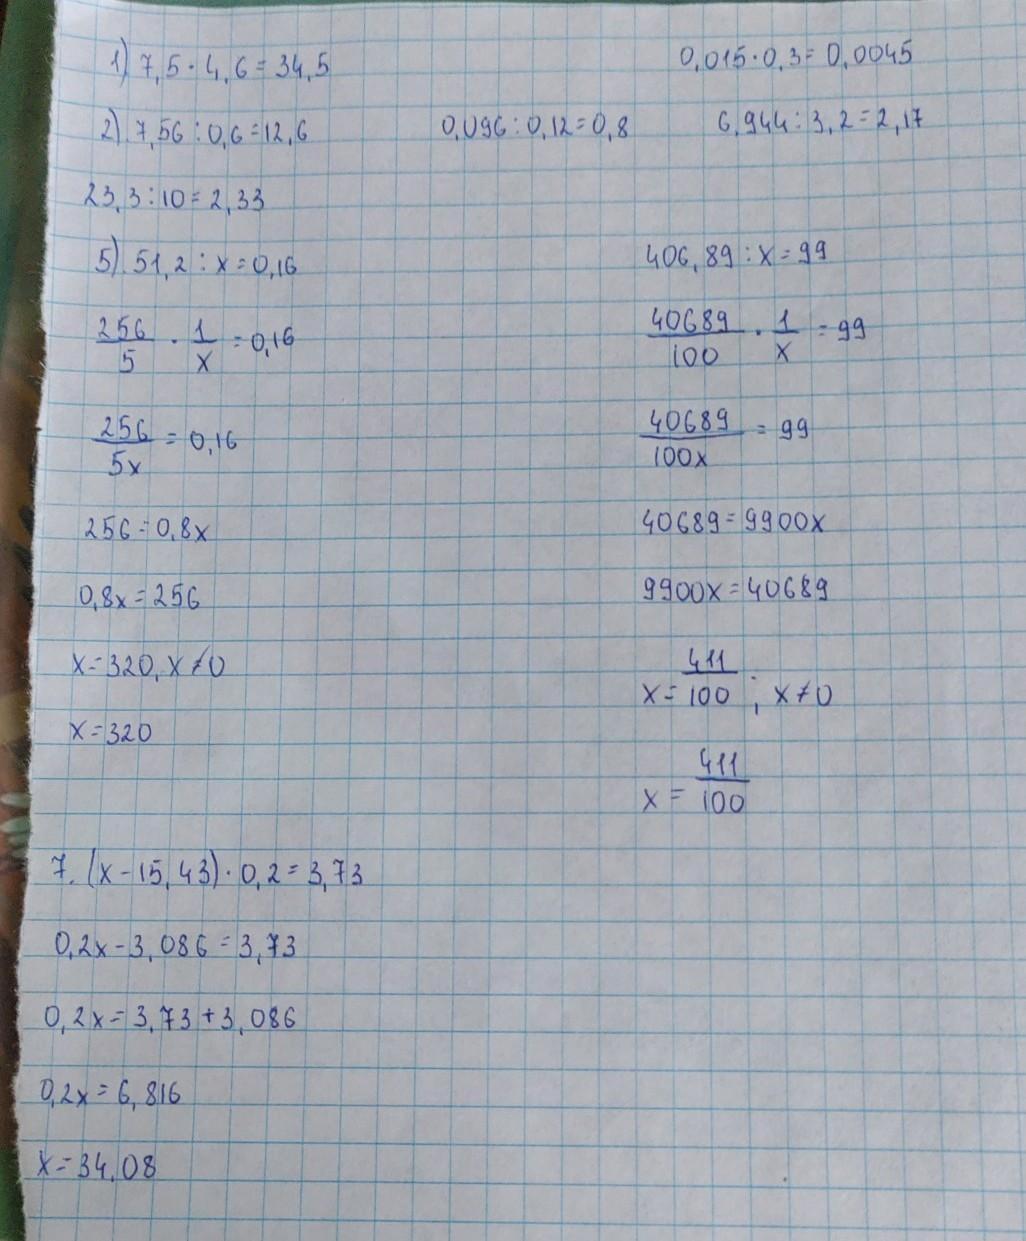 1) 7,5 · 4,6 = 34,5 0,015 · 0,3 = 0,0045
2) 7,56 : 0,6 = 12,6 0,096 : 0,12 = 0,8 6,944 : 3,2 = 2,17
23,3 : 10 = 2,33
5) 51,2 : x = 0,16 406,89 : x = 99
256/5 · 1/x = 0,16 40689/100 · 1/x = 99
256/5x = 0,16 40689/100x = 99
256 = 0,8x 40689 = 9900x
0,8x = 256 9900x = 40689
x = 320, x ≠ 0 x = 411/100 ; x ≠ 0
x = 320 x = 411/100
7. (x - 15,43) · 0,2 = 3,73
0,2x - 3,086 = 3,73
0,2x = 3,73 + 3,086
0,2x = 6,816
x = 34,08